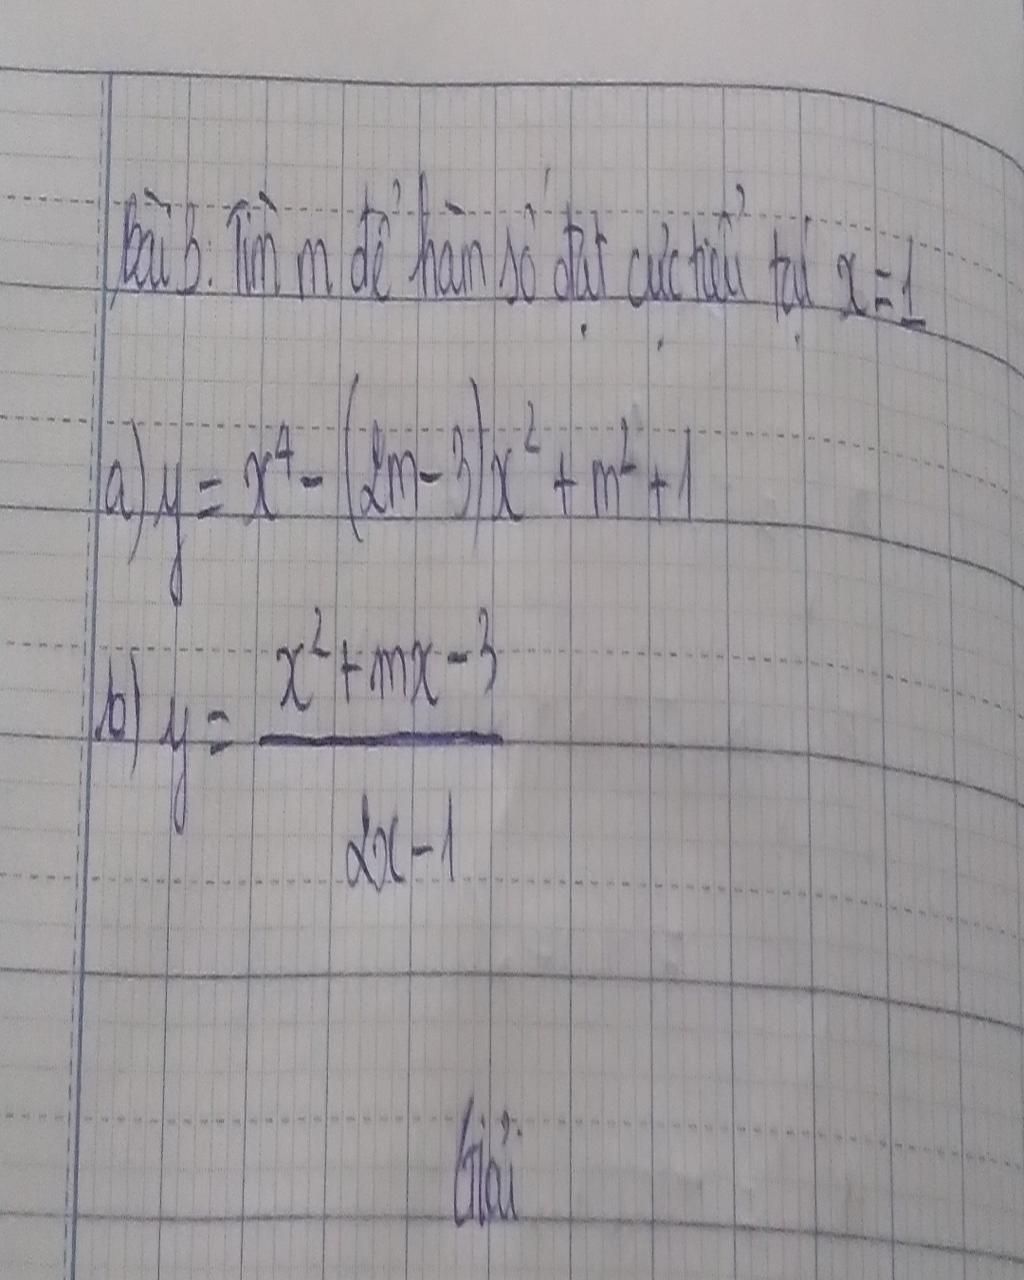 Bài 3: Tìm m để hàm số đạt cực tiểu tại x = 1
a) y = x⁴ - (2m - 3)x² + m² + 1
b) y = x² + mx - 3
2x - 1
Giải